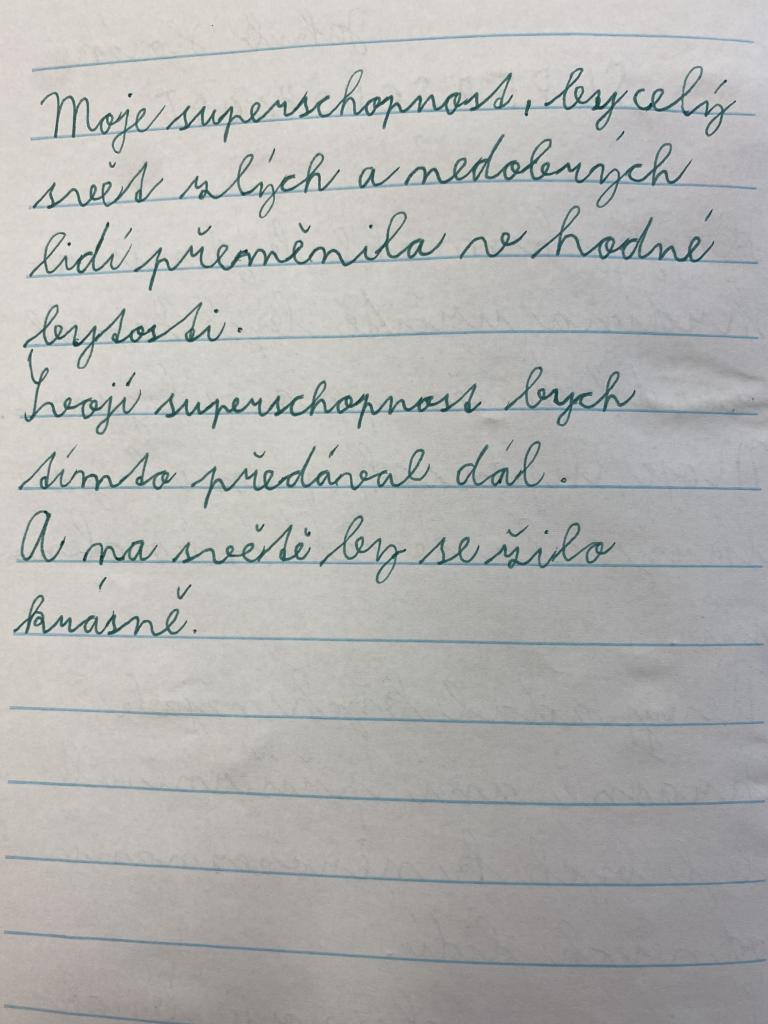 Moje superschopnost, by celý
svět zlých a nedobrých
lidí přeměnila v hodné
bytosti.
Svojí superschopnost bych
tímto předával dál.
A na světě by se žilo
krásně.